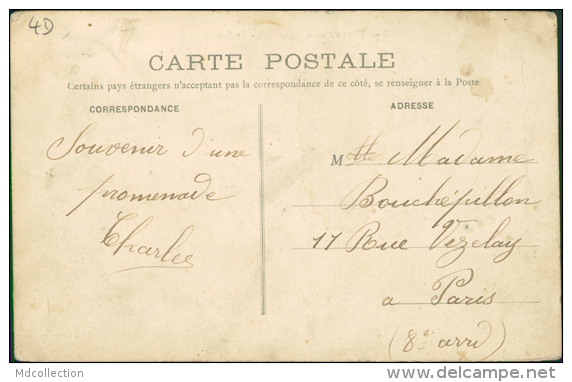 4D
CARTE POSTALE
Certains pays étrangers n'acceptant pas la correspondance de ce côté, se renseigner à la Poste
CORRESPONDANCE
Souvenir d'une
promenade
Charles
ADRESSE
Mlle Madame
Bouchépillon
17 Rue Vézelay
a Paris
(8e arrd)
Mdcollection
delcampe.net